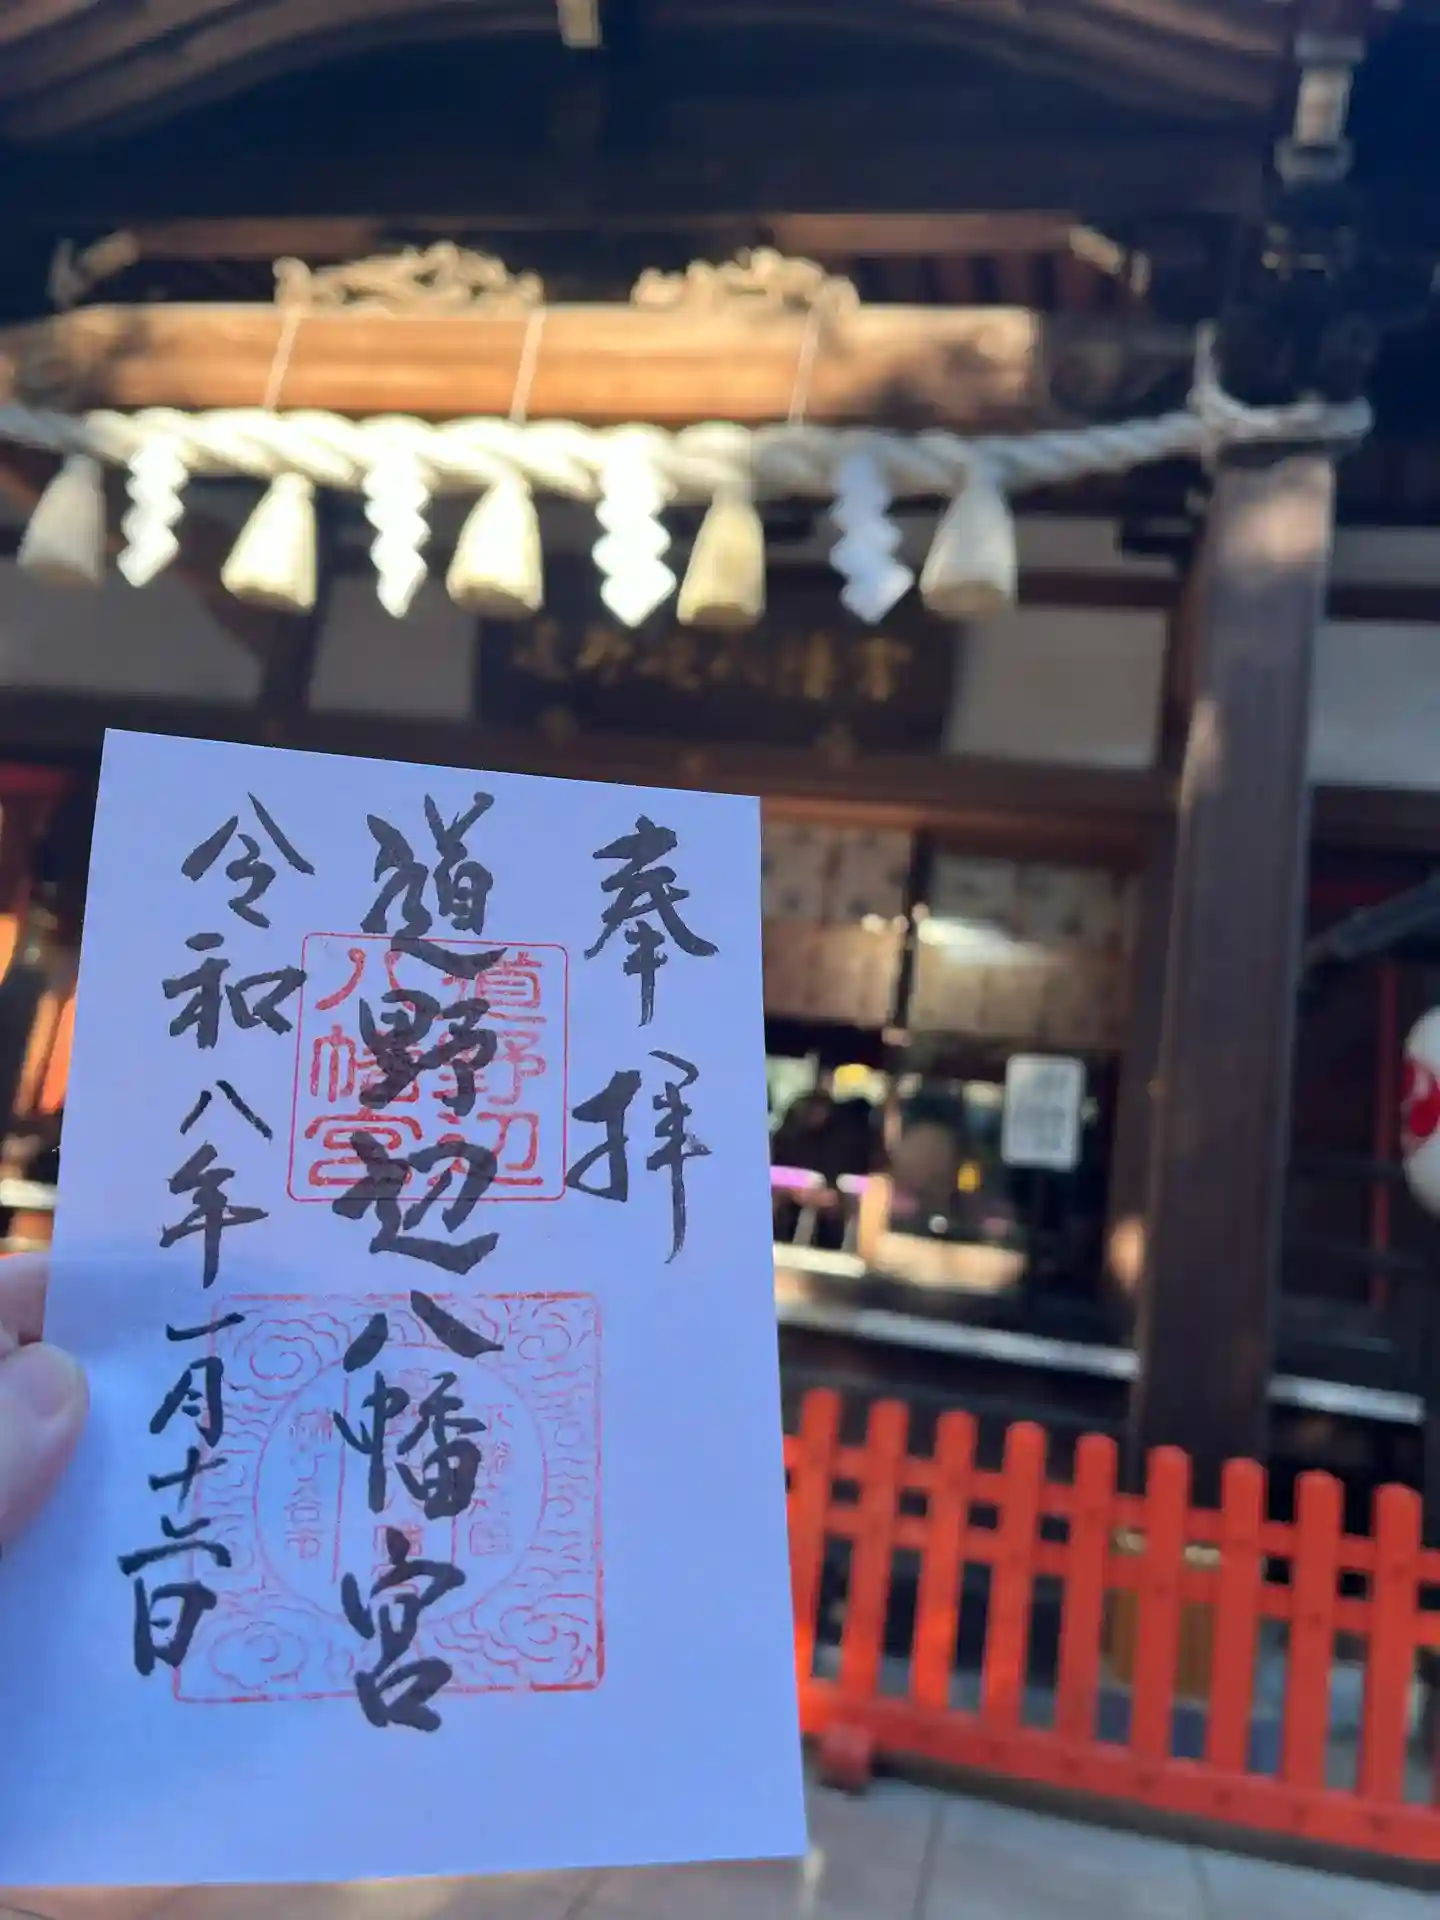 奉拝
道野辺八幡宮
令和八年一月十二日
道野辺
八幡宮
鎌ケ谷市
道野辺八幡宮